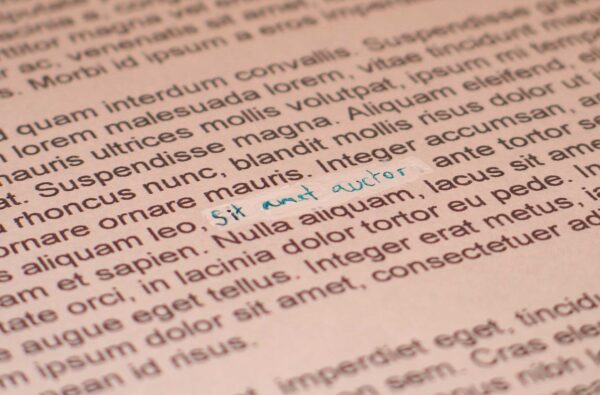 ttitor magna vel
ac, venenatis sit amet
s. Morbi id ipsum a eros imper
quam interdum convallis. Suspendisse
lorem malesuada lorem, vitae tincidunt
mauris ultrices mollis volutpat, ipsum mi temp
at. Suspendisse magna. Aliquam eleifend
rhoncus nunc, blandit mollis risus dolor ut
ornare ornare mauris. Integer accumsan, a
s aliquam leo, Sit amet auctor, ante tortor se
am et sapien. Nulla aliquam, lacus sit ame
tate orci, in lacinia dolor tortor eu pede. In
e augue eget tellus. Integer erat metus,
m ipsum dolor sit amet, consectetuer adi
ean id risus.
imperdiet eget, tincidu
sem. Cras ele
nibh